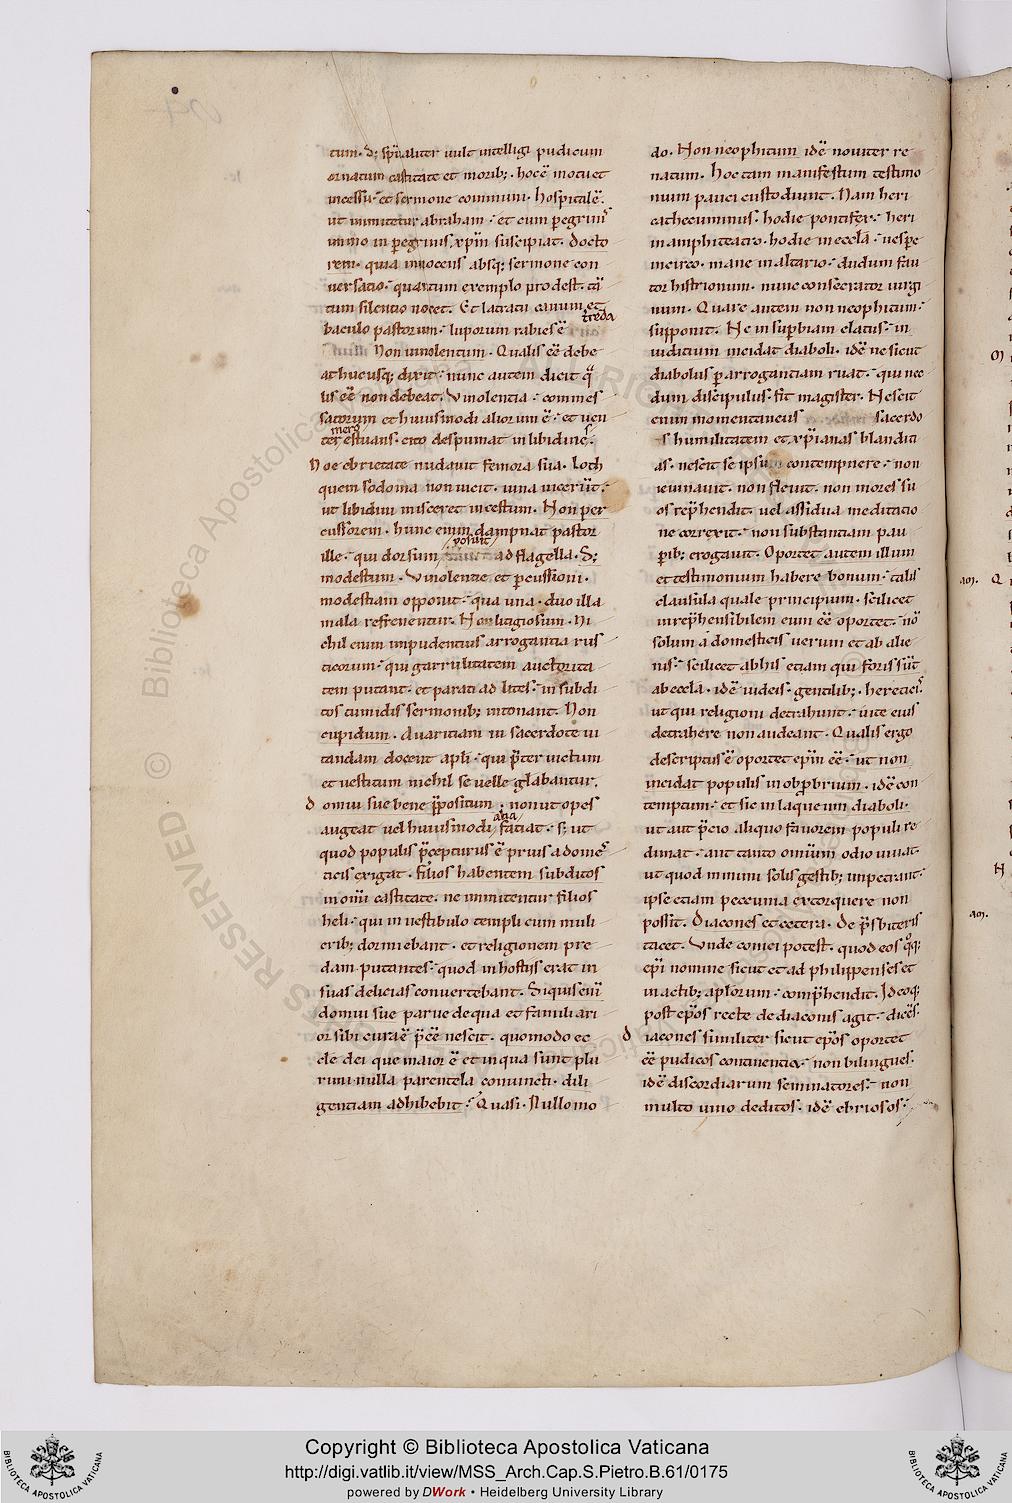 tum. S; sp̄ualiter uult intelligi pudicum
ornatum castitate et morib;. hoc ē̄ motu et
incessu. et sermone communi. hospitalē.
ut imitetur abraham. et cum peregrinis
immo in peregrinis xp̄m suscipiat. docto
rem. quia innocens absq; sermone con
uersatio. quantum exemplo prodest. tā
tum silentio nocet. Et latratu canum et
baculo pastorum. luporum rabies ē treda
Non uinolentum. Qualis eē debe
at hucusq; dixit. nunc autem dicit q̄
lis eē non debeat. Vinolentia. commes
satorum et huiusmodi aliorum ē. et uen
ter mero estuans. cito despumat in libidinēs.
Noe ebrietate nudauit femora sua. Loth
quem sodoma non uicit. uina uicerūt.
ut libidini misceret incestum. Non per
cussorem. hunc enim dampnat pastor
ille. qui dorsum posuit ad flagella. S;
modestum. Vinolentie et percussioni.
modestiam opponit. qua una. duo illa
mala refrenentur. Non litigiosum. Ni
chil enim impudentius arrogantia rus
ticorum. qui garrulitatem auctorita
tem putant. et parati ad lites. in subdi
tos tumidis sermonib; intonant. Non
cupidum. Auaritiam in sacerdote ui
tandam docent apli. qui p̄ter uictum
et uestitum nichil se uelle glabantur.
domui sue bene p̄positum. non ut opes
augeat uel huiusmodi alia faciat. s; ut
quod populis p̄cepturus ē prius a domes
ticis exigat. filios habentem subditos
in om̄i castitate. ne immitentur filios
heli. qui in uestibulo templi cum muli
erib; dormiebant. et religionem pre
dam putantes. quod in hostijs erat in
suas delicias conuertebant. Si quis enī
domui sue parue de qua et familiari
or sibi cura ē p̄eē nescit. quomodo ec
cle dei que maior ē et in qua sunt plu
rimi nulla parentela coniuncti. dili
gentiam adhibebit. Quasi. Nullo mo
do. Non neophitum idē nouiter re
natum. Hoc tam manifestum testimo
nium pauci custodiunt. Nam heri
cathecuminus. hodie pontifex. heri
in amphiteatro. hodie in eccl̄a. uespe
in circo. mane in altario. dudum fau
tor histrionum. nunc consecrator uirgi
num. Quare autem non neophitum.
supponit. Ne in suꝑbiam elatus. in
iuditium incidat diaboli. idē ne sicut
diabolus ꝑ arrogantiam ruat. qui nec
dum discipulus. fit magister. Nescit
enim momentaneus sacerdo
s humilitatem et xp̄ianas blanditi
as. nescit se ipsum contempnere. non
ieiunauit. non fleuit. non mores su
os rep̄hendit. uel assidua meditatio
ne correxit. non substantiam pau
ꝑib; erogauit. Oportet autem illum
et testimonium habere bonum. talis
clausula quale principium. scilicet
inrep̄hensibilem eum eē oportet. nō
solum a domesticis uerum et ab alie
nis. scilicet ab his etiam qui foris sūt
ab eccl̄a. idē iudeis. gentilib;. hereticis.
ut qui religioni detrahunt. uite eius
detrahere non audeant. Qualis ergo
descriptus ē oportet ep̄m eē. ut non
incidat populis in obprobrium. idē con
temptum. et sic in laqueum diaboli.
ut aut p̄cio aliquo fauorem populi re
dimat. aut tanto omium odio uiuat.
ut quod minimi solis gestib; impetrant.
ipse etiam peccunia extorquere non
possit. Diacones et cetera. De p̄sbiteris
tacet. Vnde conici potest. quod eos q̊q;
ep̄i nomine sicut et ad philippenses et
in actib; ap̄lorum. comp̄hendit. Ideoq;
post ep̄os recte de diaconis agit. dicēs.
diacones similiter sicut ep̄os oportet
eē pudicos continentia. non bilingues.
idē discordiarum seminatores. non
multo uino deditos. idē ebriosos.
Copyright © Biblioteca Apostolica Vaticana
http://digi.vatlib.it/view/MSS_Arch.Cap.S.Pietro.B.61/0175
powered by DWork • Heidelberg University Library